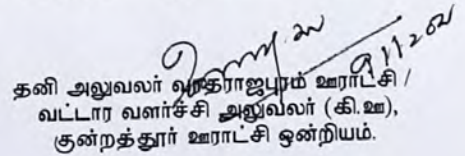 தனி அலுவலர் வரதராஜபுரம் ஊராட்சி /
வட்டார வளர்ச்சி அலுவலர் (கி.ஊ),
குன்றத்தூர் ஊராட்சி ஒன்றியம்.